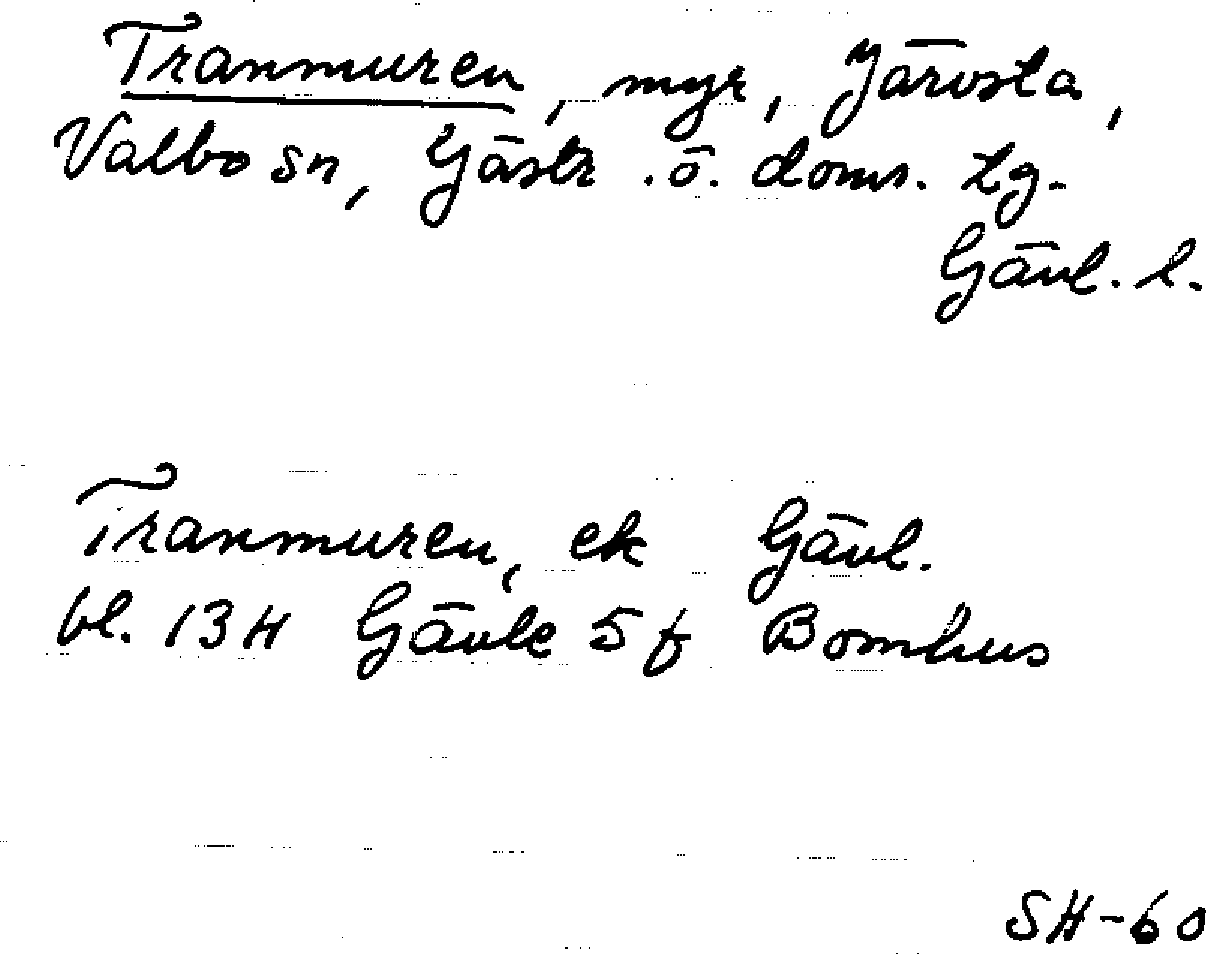 Tranmuren, myr, Järvsta,
Valbo sn, Gästr. ö. doms. tg.
Gävl. l.
Tranmuren, ek Gävl.
bl. 13H Gävle 5f Bomhus
SH-60